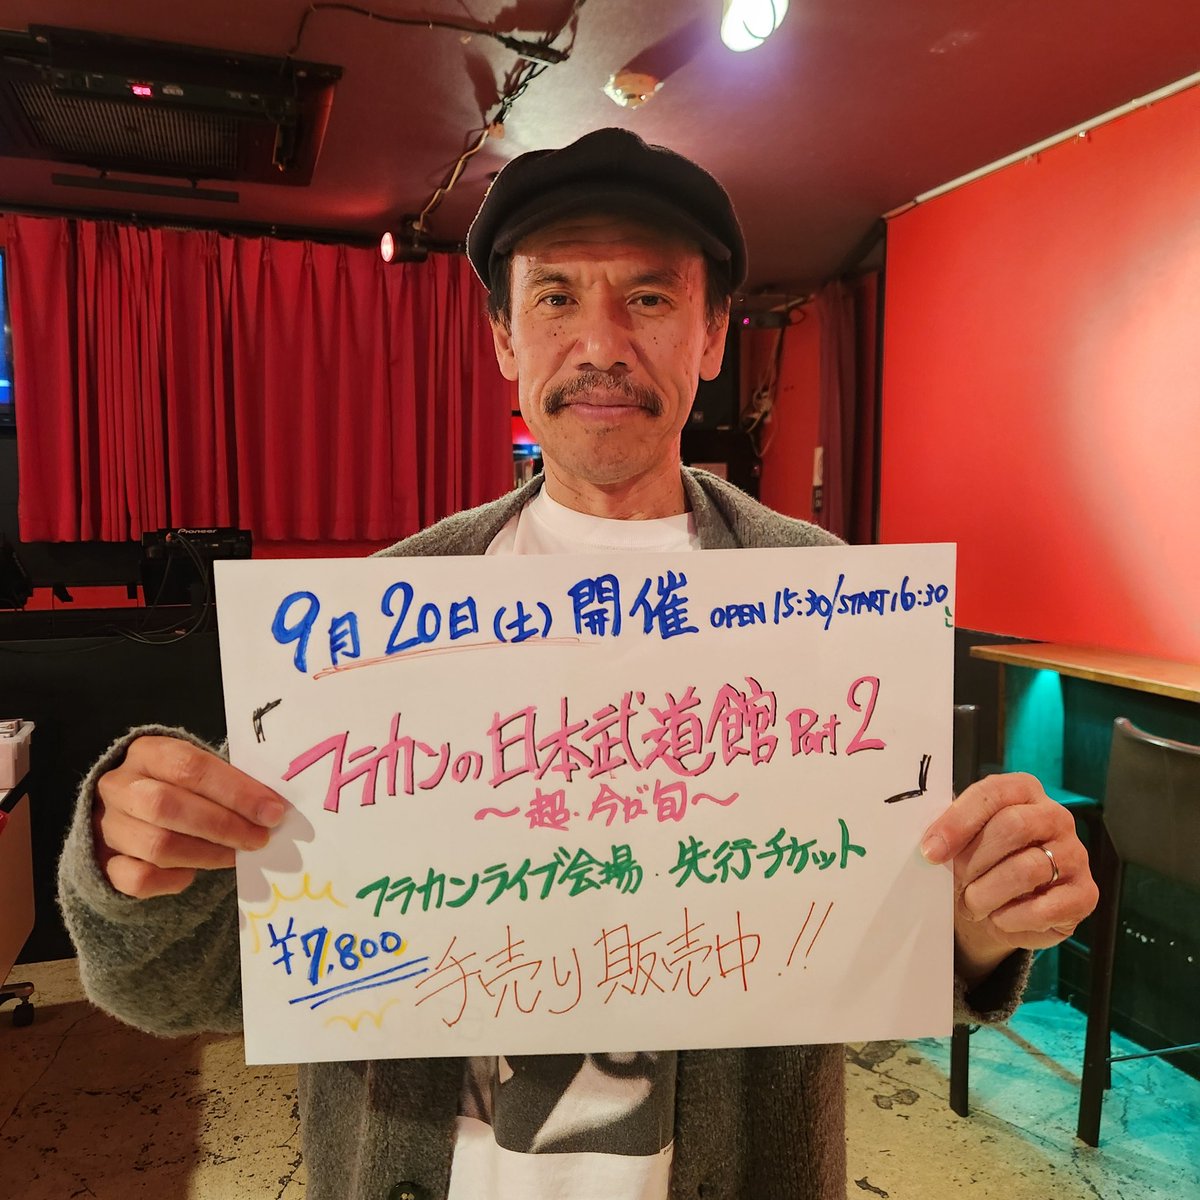 Pioneer
9月20日(土)開催 OPEN 15:30/START 16:30
「フラカンの日本武道館 Part 2
〜超・今が旬〜」
フラカンライブ会場・先行チケット
¥7,800 手売り販売中!!